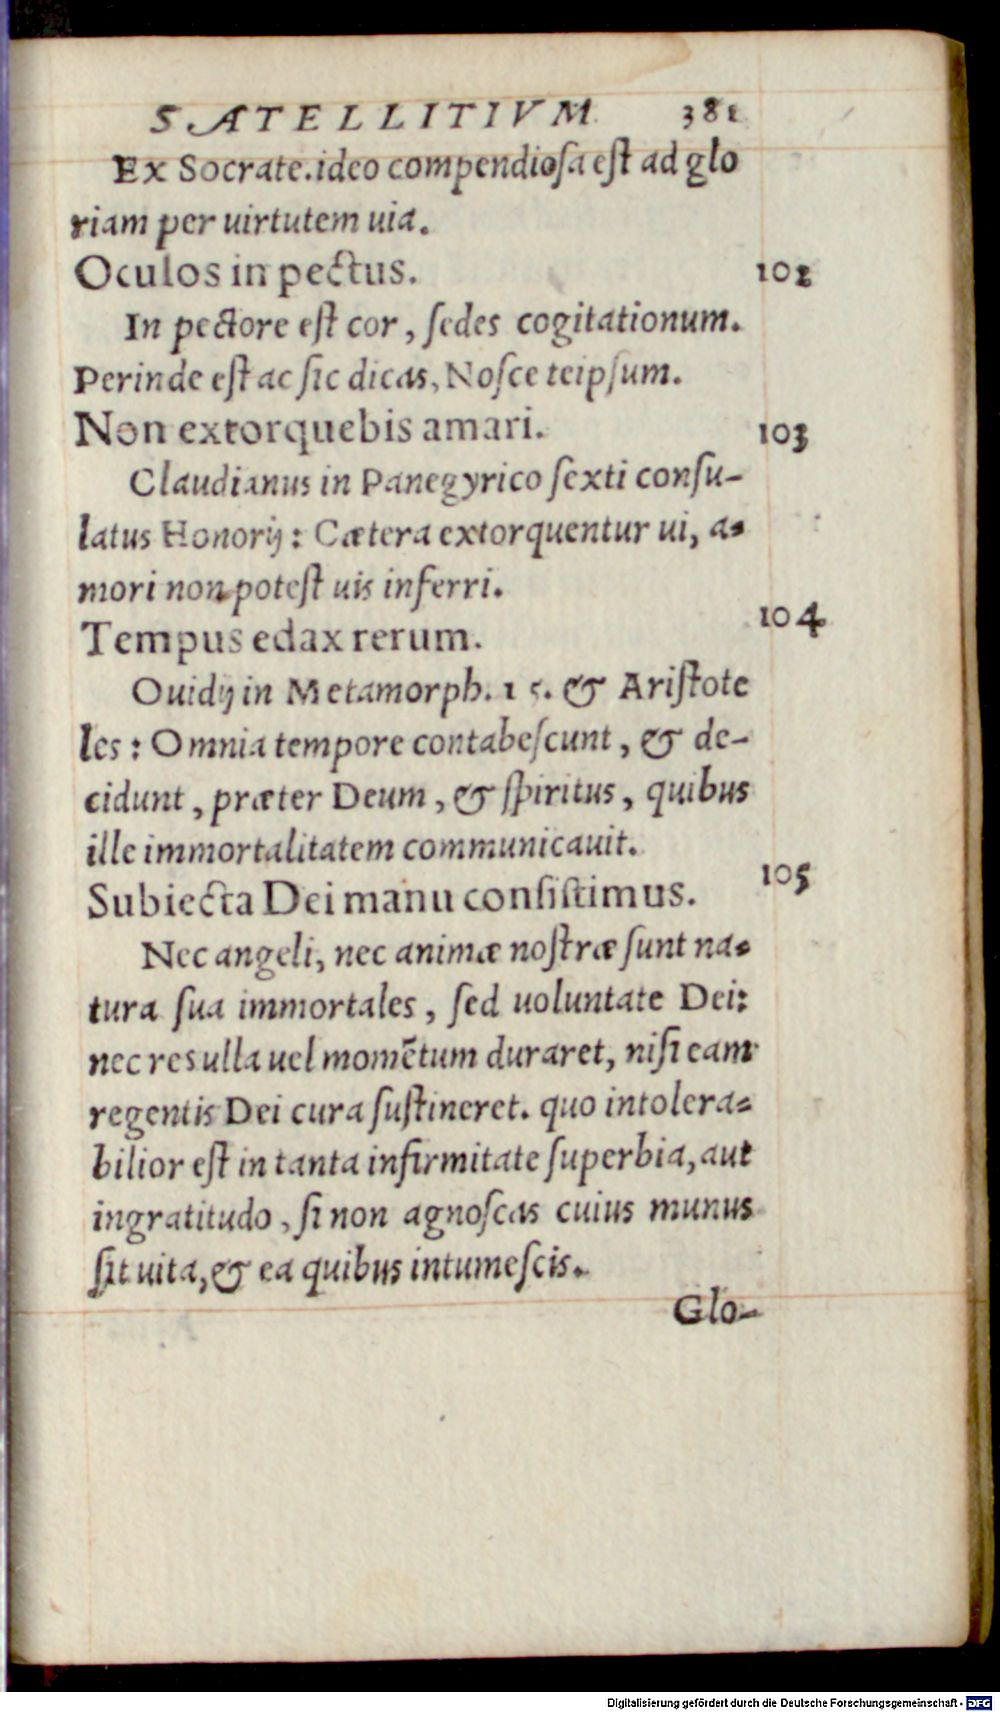 SATELLITIVM 381
Ex Socrate. ideo compendiosa est ad glo
riam per uirtutem uia.
Oculos in pectus. 102
In pectore est cor, sedes cogitationum.
Perinde est ac sic dicas, Nosce teipsum.
Non extorquebis amari. 103
Claudianus in Panegyrico sexti consu-
latus Honorij: Cætera extorquentur ui, a-
mori non potest uis inferri.
Tempus edax rerum. 104
Ouidij in Metamorph. 15. & Aristote
les: Omnia tempore contabescunt, & de-
cidunt, præter Deum, & spiritus, quibus
ille immortalitatem communicauit.
Subiecta Dei manu consistimus. 105
Nec angeli, nec animæ nostræ sunt na-
tura sua immortales, sed uoluntate Dei:
nec res ulla uel momẽtum duraret, nisi eam
regentis Dei cura sustineret. quo intolera-
bilior est in tanta infirmitate superbia, aut
ingratitudo, si non agnoscas cuius munus
sit uita, & ea quibus intumescis.
Glo-
Digitalisierung gefördert durch die Deutsche Forschungsgemeinschaft - DFG